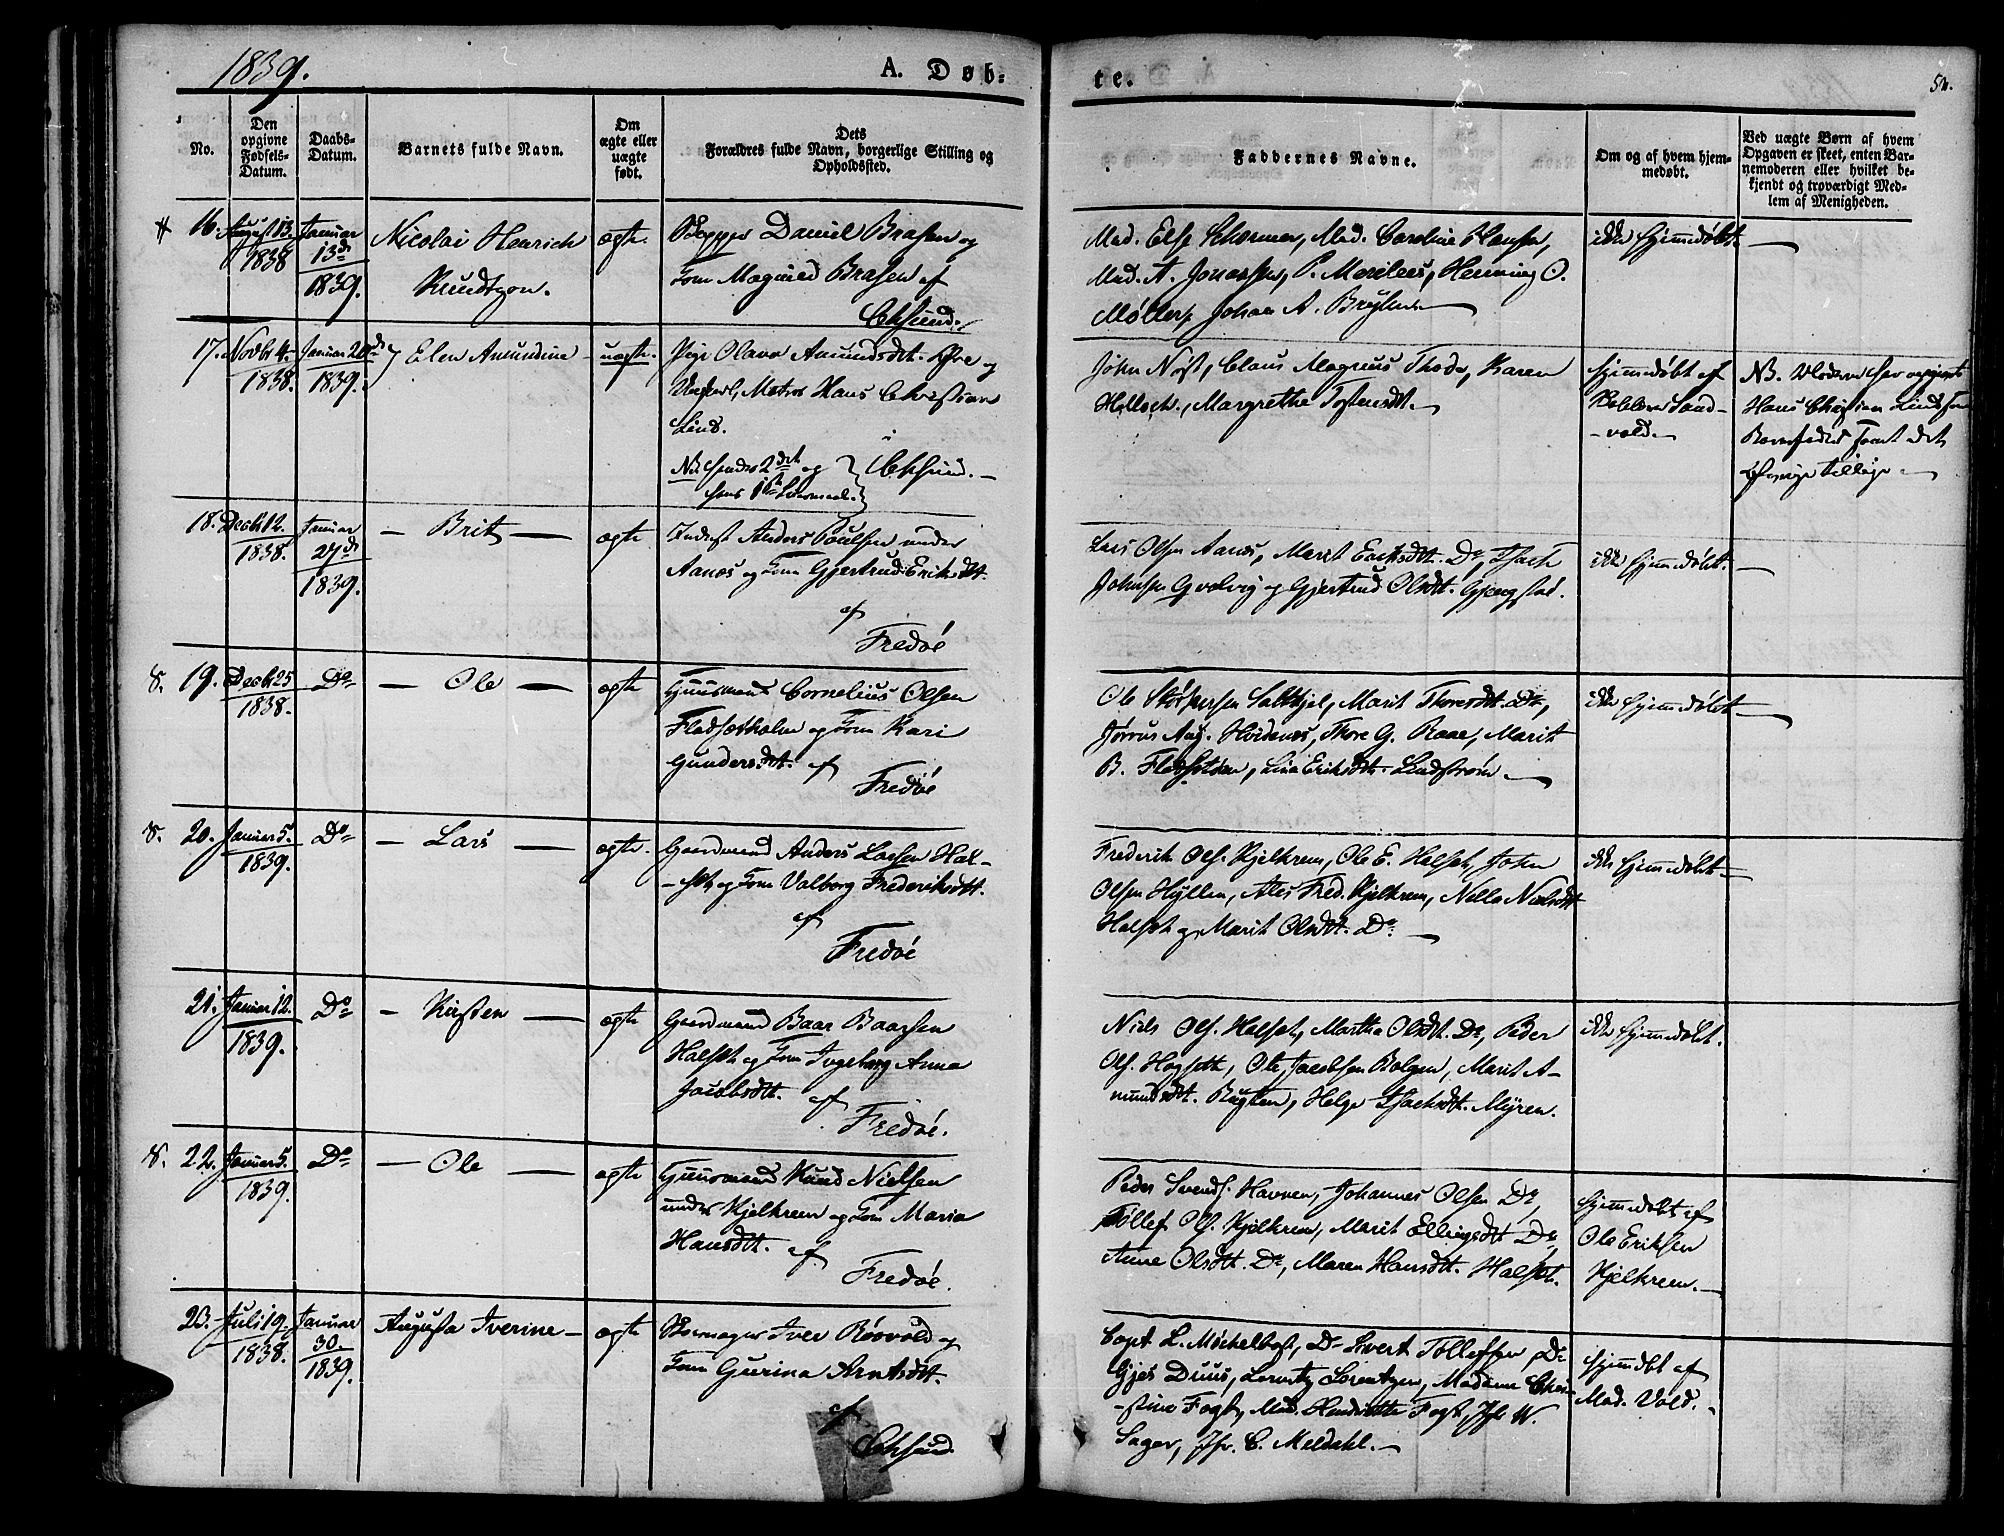 1839.
A. Døb-
te.
52.
No.
Den
opgivne
Fødsels-
Datum.
Daabs-
Datum.
Barnets fulde Navn.
Om
ægte eller
uægte
født.
Dets
Forældres fulde Navn, borgerlige Stilling og
Opholdssted.
Faddernes Navne.
Om og af hvem hjem-
medøbt.
Ved uægte Børn af hvem
Opgaven er skeet, enten Bar-
nemoderen eller hvilket be-
kjendt og troværdigt Med-
lem af Menigheden.
16.
August 13.
1838
Januar
13de
1839.
Nicolai Henrich
Knudtzon.
ægte.
Daniel Brasen og
Kone Magnild Brasen af
Chsund.
Mad. Else Mad. Caroline Hansen,
Mad. A. Jonassen, P. Henning O.
Møller, Johan A.
ikke hjemmedøbt.
17.
Novbr 4.
1838.
Januar 20de
1839.
Elen Amundine
uægte.
Pige Olava Amundsdt. og
Matros Hans Christian
Lind.
NB. hendes 2det og
hans 1ste Leiermaal.
i Chsund.
John Claus Magnus Thode, Karen
Margrethe Tostensdt.
hjemmedøbt af
Sand-
vold.
NB. har opgivet
Hans Christian Lind som
Barnefader samt det
Øvrige tillige
18.
Decbr 12.
1838.
Januar
27de
1839.
Brit
ægte
Inderst Anders Poulsen under
Aanes og Kone Gjertrud Eriksdt.
af
Fredøe
Lars Olsen Aanes, Marit Do, Isach
Johnsen Qvalvig og Gjertrud Olsdt.
ikke hjemmedøbt.
8.
19.
Decbr 25
1838.
Do
Ole
ægte
Huusmand Cornelius Olsen
Fladsetholm og Kone Kari
Gundersdt. af
Fredøe
Ole Marit Thoresdt. Do,
Aug. Thore G. Marit
B. Eriksdt. Lindstrøm.
ikke hjemmedøbt
8.
20.
Januar 5.
1839.
Do
Lars
ægte.
Gaardmand Anders Larsen Hal-
-set og Kone Valborg Frederiksdt.
af
Fredøe
Frederik Ols. Kjelkrem, Ole E. Halset, John
Olsen Hyllen, Ales Fred. Kjelkrem, Nille Nielsdt
Halset og Marit Olsdt. Do
ikke hjemmedøbt
21.
Januar 12.
1839.
Do
Kirsten
ægte
Gaardmand Baar Baarsen
Halset og Kone Ingeborg Anna
Jacobsdt. af
Fredøe.
Niels Ols. Halset, Martha Olsdt. Do, Peder
Ols. Ole Jacobsen Bolgen, Marit A-
mundsdt. Helge Isachsdt. Myren.
ikke hjemmedøbt.
8.
22.
Januar 5.
1839.
Do
Ole
ægte
Huusmand Knud Nielsen
under Kjelkrem og Kone Maria
Hansdt. af
Fredøe.
Peder Svends. Havnen, Johannes Olsen Do,
Tollef Ols. Kjelkrem, Marit Ellingsdt Do,
Anne Olsdt. Do, Maren Hansdt. Halset.
hjemmedøbt af
Ole Eriksen
Kjelkrem.
23.
Juli 19.
1838.
Januar
30.
1839.
Augusta Iverine
ægte
Iver Rosvold og
Kone Gurina Arntsdt.
af
Chsund
Capt. L. Do Sivert Tollefsen, Do
Gjes Duus, Lorentz Lorentzen, Madame Chri-
-stine Fogt, Mad. Henriette Fogt, Jfr W.
Sager, Jfr. C. Meldahl.
hjemmedøbt af
Mad. Vold.